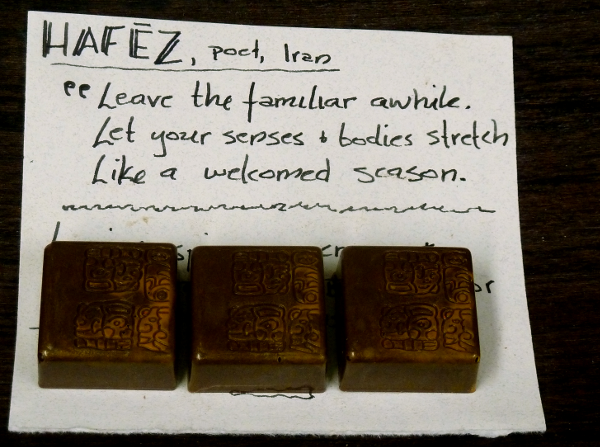 HAFĒZ, poet, Iran
"Leave the familiar awhile.
Let your senses + bodies stretch
Like a welcomed season.